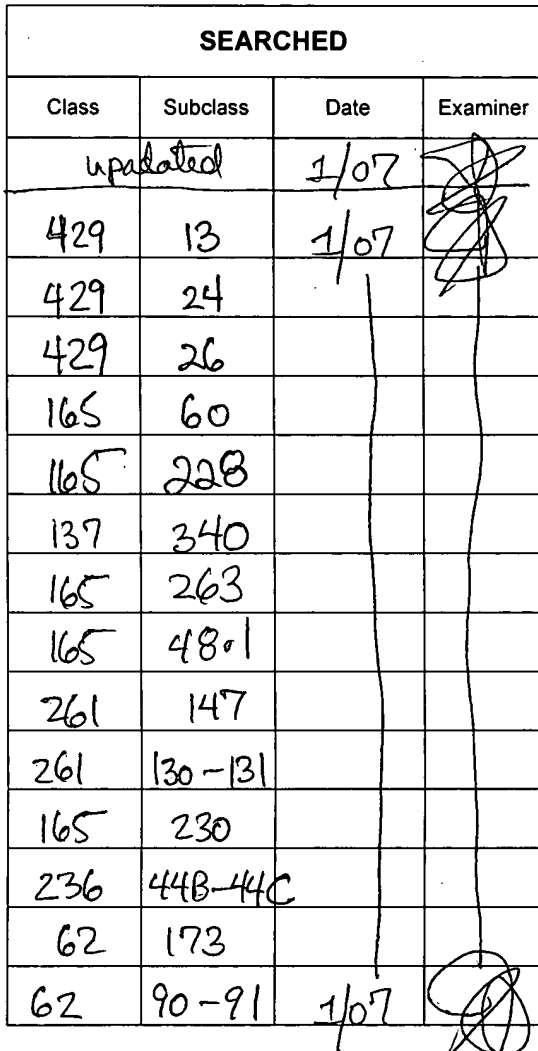 SEARCHED
Class Subclass Date Examiner
upadated 1/07
429 13 1/07
429 24
429 26
165 60
165 228
137 340
165 263
165 48.1
261 147
261 130-131
165 230
236 44B-44C
62 173
62 90-91 1/07